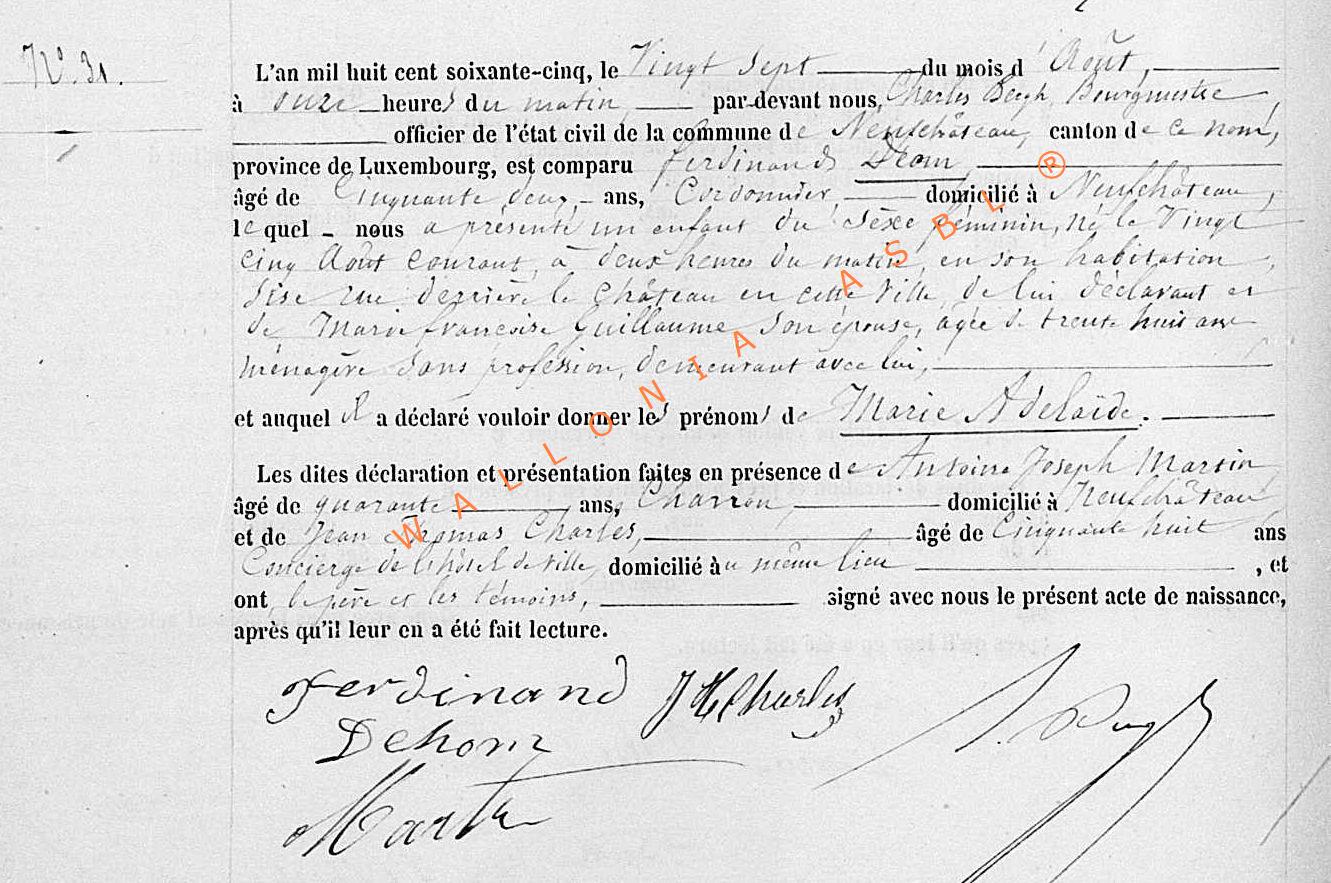 N° 31.
L'an mil huit cent soixante-cinq, le Vingt Sept du mois d'Août,
à onze heures du matin, par-devant nous, Charles Bergh, Bourgmestre,
officier de l'état civil de la commune de Neufchâteau, canton de ce nom,
province de Luxembourg, est comparu ferdinand Déom,
âgé de Cinquante deux, ans, Cordonnier, domicilié à Neufchâteau,
lequel nous a présenté un enfant du sèxe féminin, né le Vingt
cinq Août courant, à deux heures du matin, en son habitation,
sise rue derrière le Château en cette ville, de lui déclarant et
de Marie françoise Guillaume son épouse, agée de trente huit ans
ménagère sans profession, demeurant avec lui,
et auquel il a déclaré vouloir donner les prénoms de Marie Adelaïde.
Les dites déclaration et présentation faites en présence de Antoine Joseph Martin
âgé de quarante ans, Charron, domicilié à Neufchâteau
et de Jean Thomas Charles, âgé de Cinquante huit ans
Concierge de l'hôtel de Ville, domicilié au même lieu, et
ont, le père et les témoins, signé avec nous le présent acte de naissance,
après qu'il leur en a été fait lecture.
ferdinand Charles
Dehom
Martin
WALLONIA ASBL ®